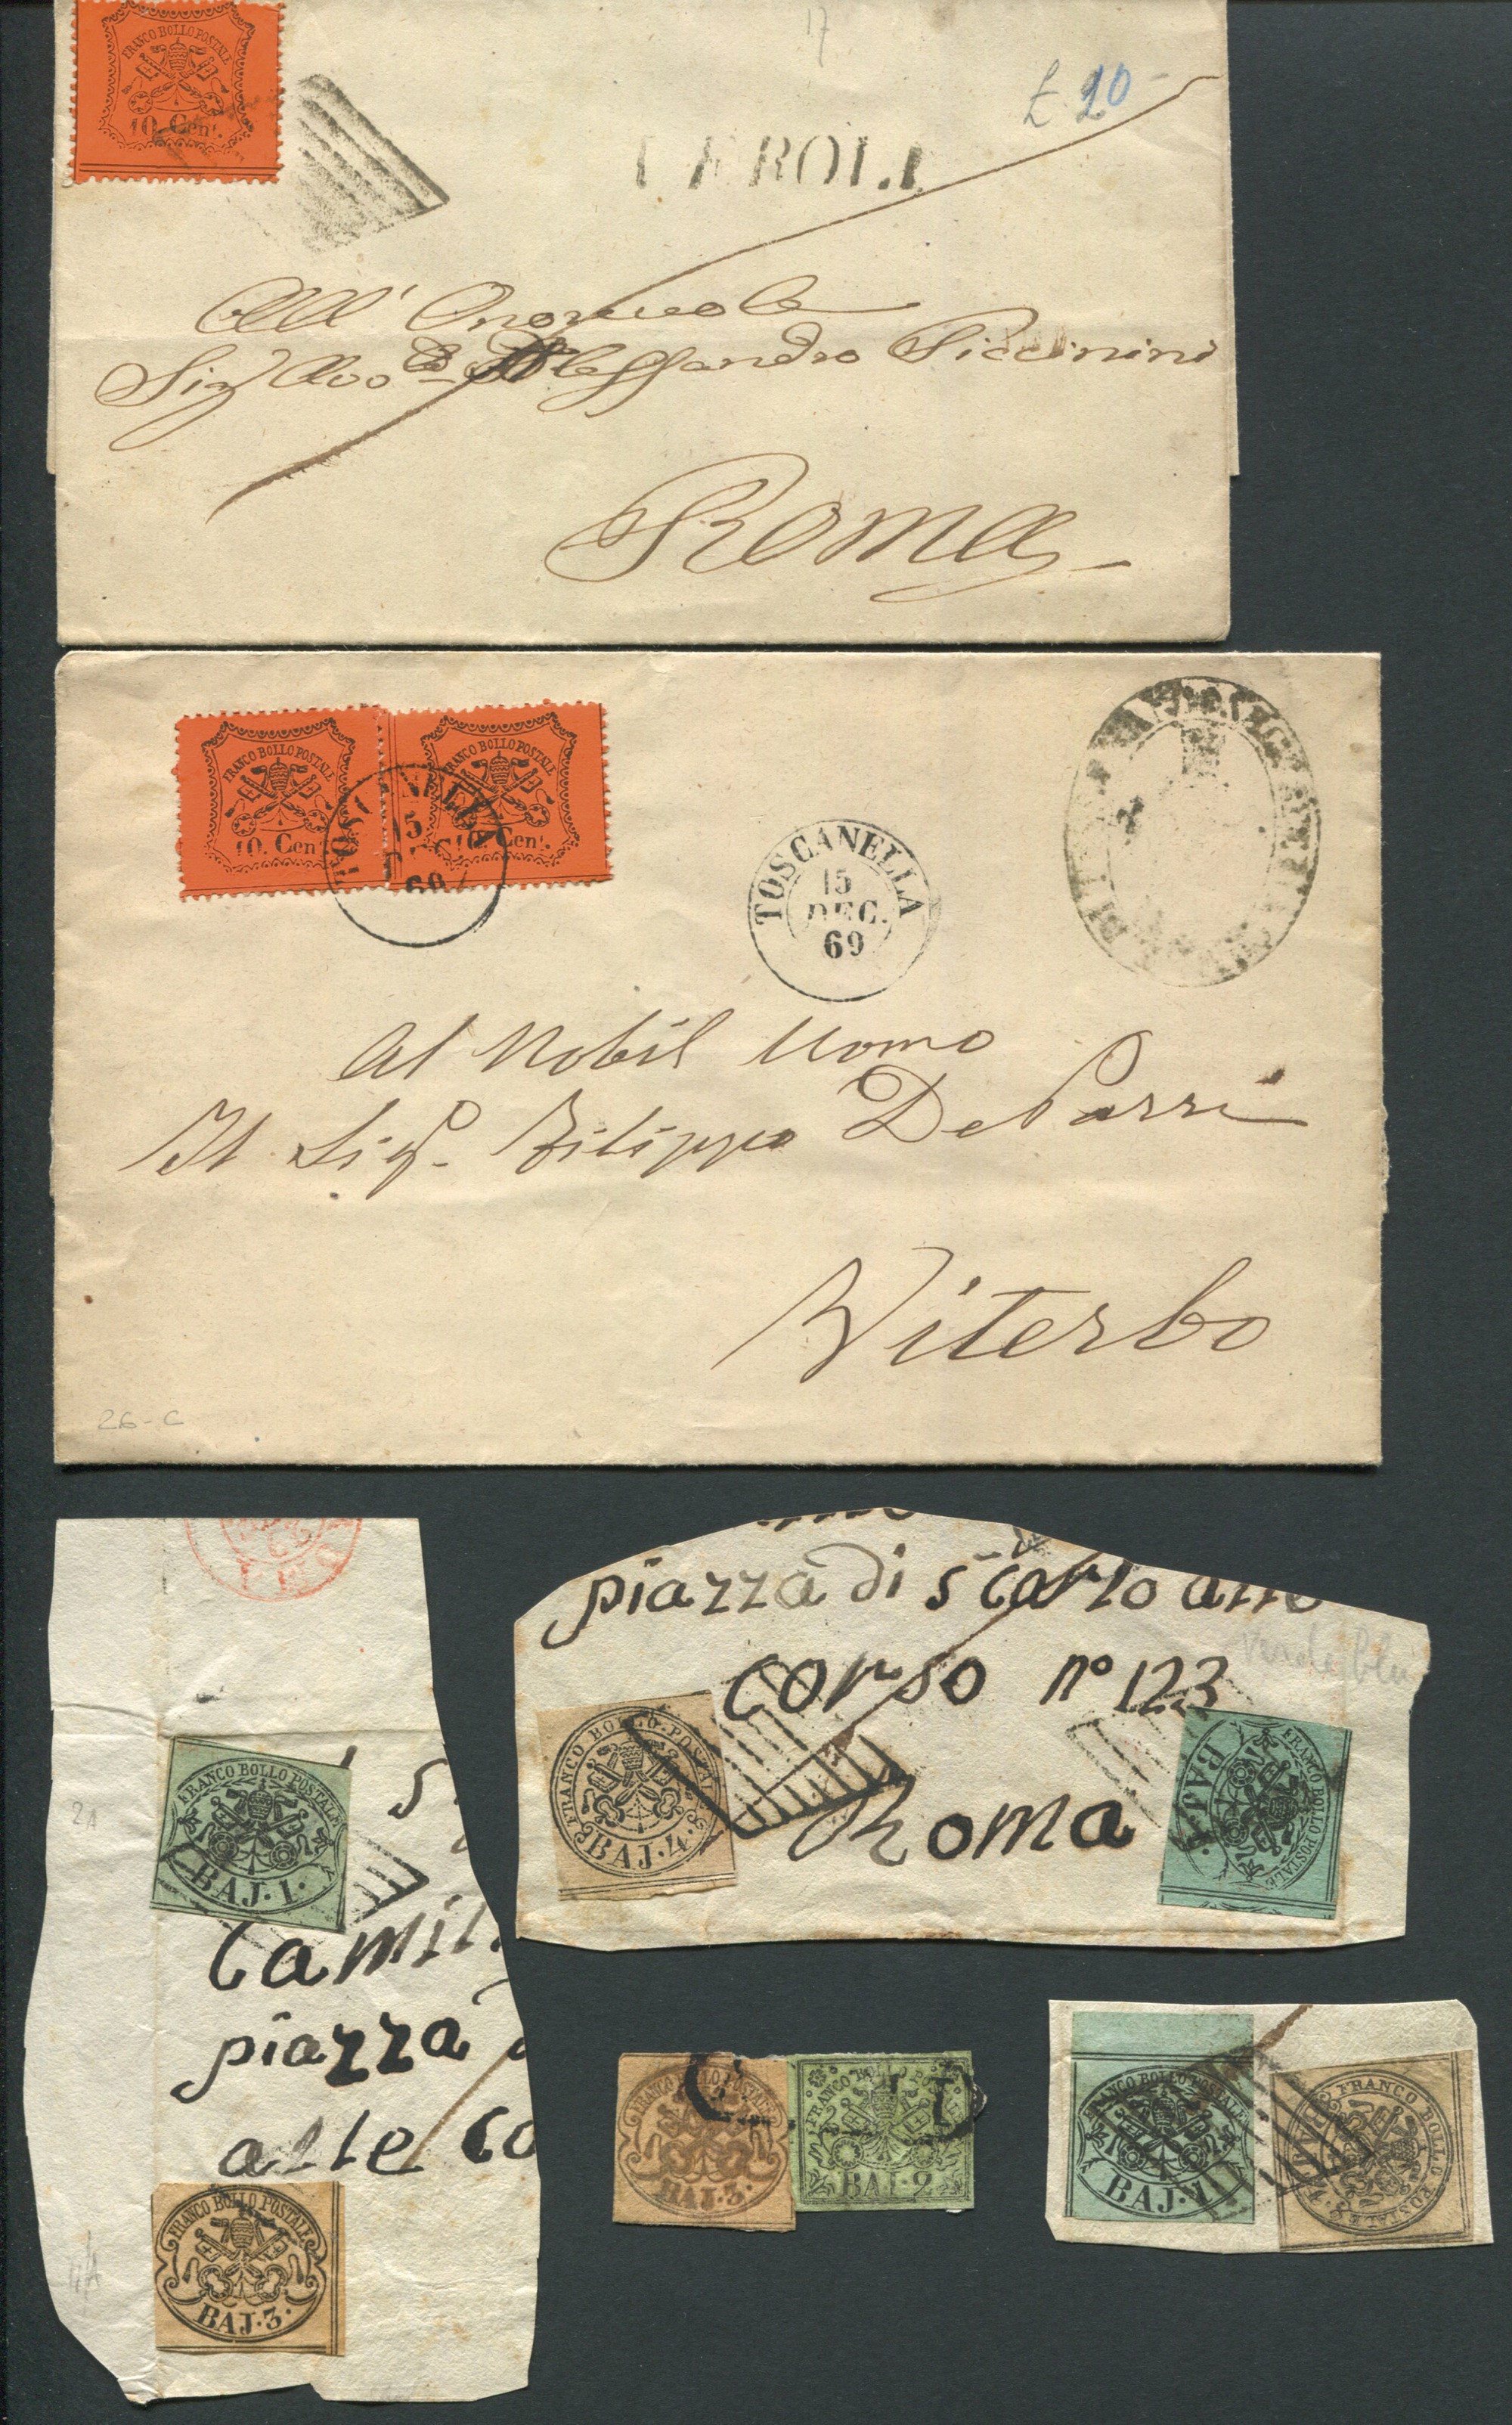 FRANCO BOLLO POSTALE
10. Cent.
17
£ 20
VEROLI
All' Onorevole
Sig Avv.to Alessandro Piccinini
Roma
FRANCO BOLLO POSTALE
10. Cent.
FRANCO BOLLO POSTALE
10. Cent.
TOSCANELLA
15
DEC.
69
TOSCANELLA
15
DEC.
69
Al Nobil Uomo
Il Sig.
Filippo De Parri
Viterbo
26-C
FRANCO BOLLO POSTALE
BAJ. 1.
2A
piazza
alle Co
FRANCO BOLLO POSTALE
BAJ. 3.
4A
piazza di S Carlo alle
Corso nº 123
verde blu
FRANCO BOLLO POSTALE
BAJ. 4.
Roma
FRANCO BOLLO POSTALE
BAJ. 1.
FRANCO BOLLO POSTALE
BAJ. 3.
FRANCO BOLLO POSTALE
BAJ. 2
FRANCO BOLLO POSTALE
BAJ. 1
FRANCO BOLLO POSTALE
BAJ.